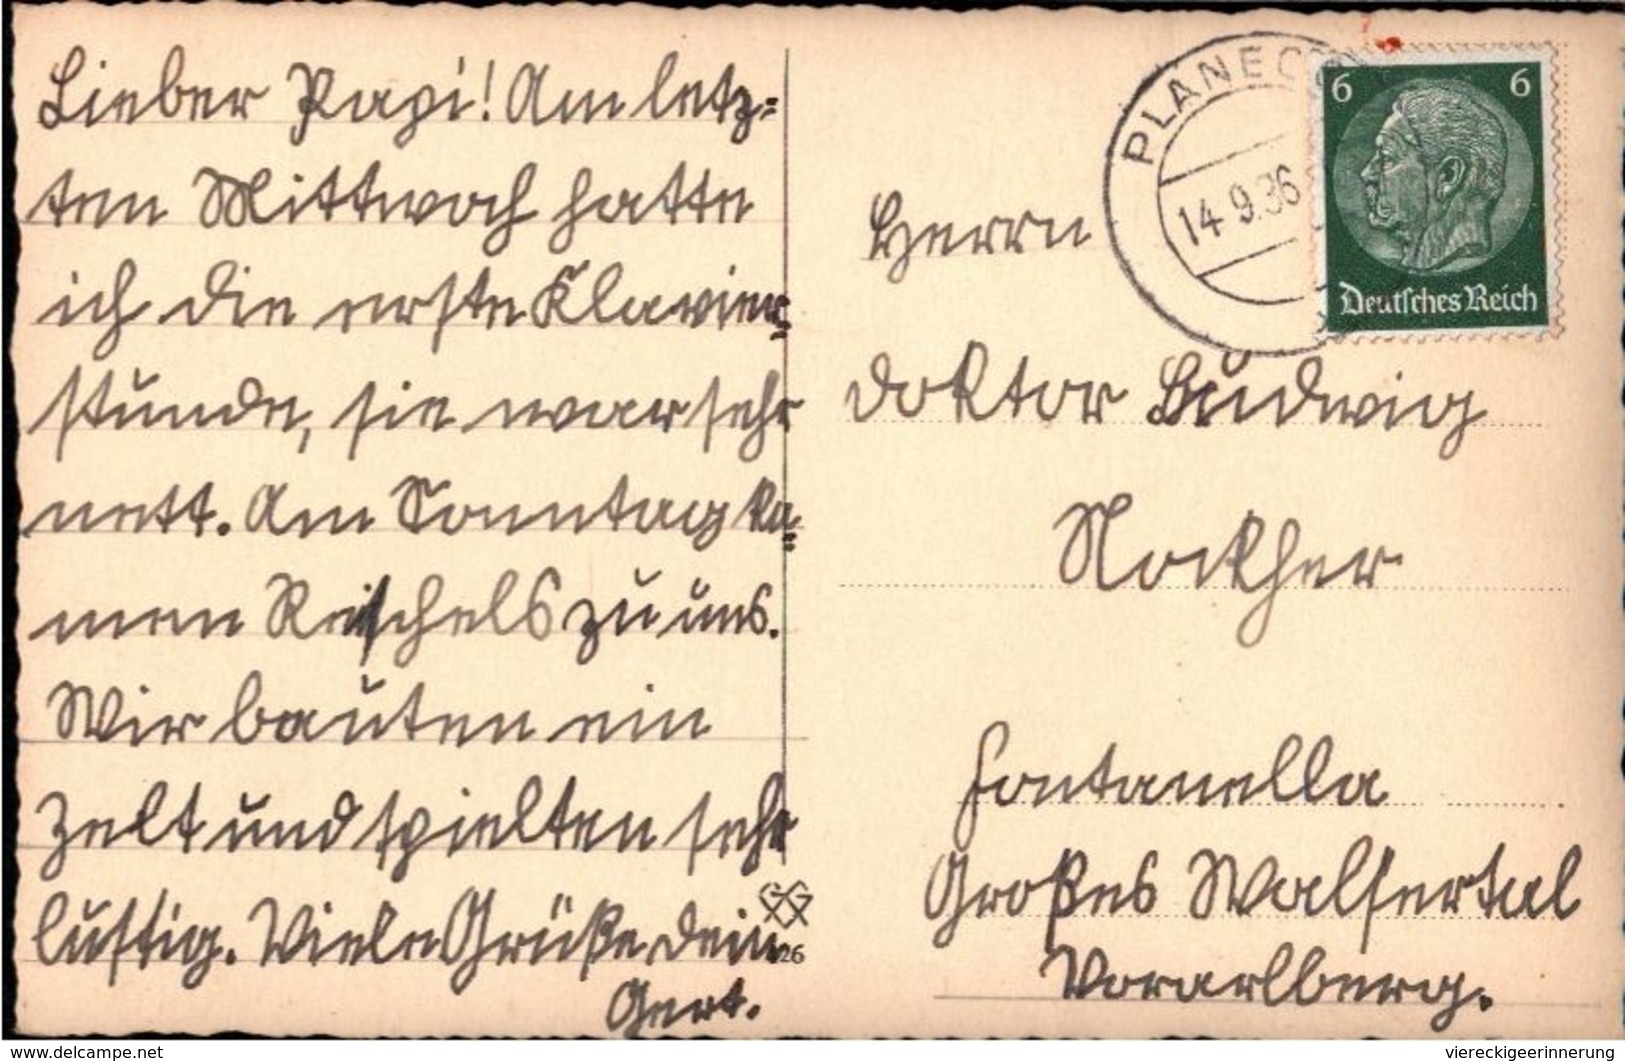 Lieber Papi! Am letz-
ten Mittwoch hatte
ich die erste Klavier-
stunde, sie war sehr
nett. Am Sonntag ka-
men Reischels zu uns.
Wir bauten ein
Zelt und spielten sehr
lustig. Viele Grüße dein
Gert.
PLANEGG
14.9.36
6 6
Deutsches Reich
Herrn
Doktor Ludwig
Nockher
Fontanella
Großes Walsertal
Vorarlberg.
26
www.delcampe.net
viereckigeerinnerung